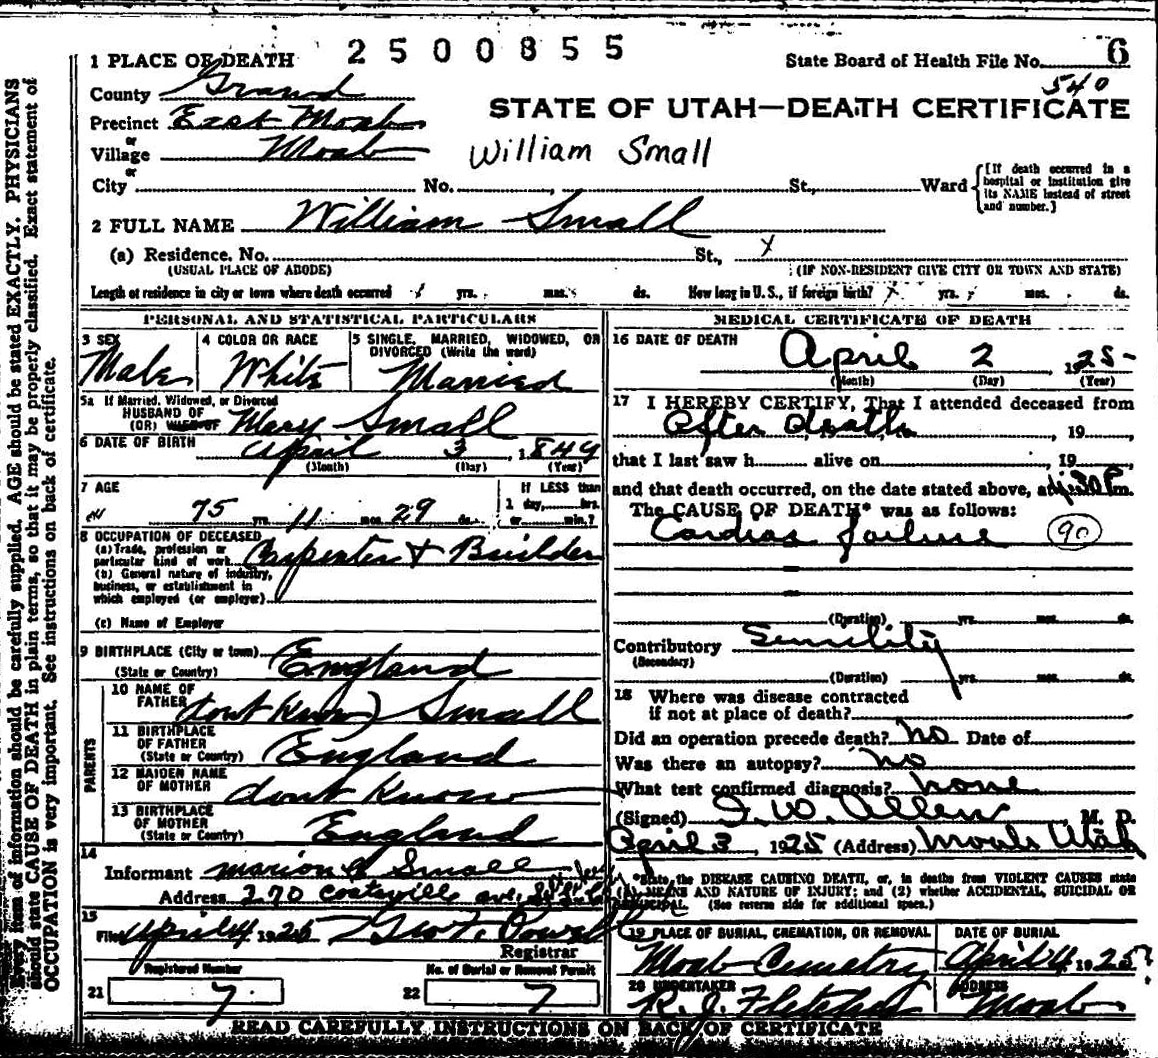 2500855
6
1 PLACE OF DEATH
State Board of Health File No.
540
County Grand
STATE OF UTAH—DEATH CERTIFICATE
Precinct East Moab
or
Village Moab
William Small
or
City No. , St., Ward
[If death occurred in a hospital or institution give its NAME instead of street and number.]
2 FULL NAME William Small
(a) Residence. No. St.,
(USUAL PLACE OF ABODE) (IF NON-RESIDENT GIVE CITY OR TOWN AND STATE)
Length of residence in city or town where death occurred yrs. mos. ds. How long in U. S., if foreign birth? yrs. mos. ds.
PERSONAL AND STATISTICAL PARTICULARS
3 SEX 4 COLOR OR RACE 5 SINGLE, MARRIED, WIDOWED, OR DIVORCED (Write the word)
Male White Married
5a If Married, Widowed, or Divorced
HUSBAND OF
(OR) WIFE OF Mary Small
6 DATE OF BIRTH April 3, 1849
(Month) (Day) (Year)
7 AGE If LESS than
75 yrs. 11 mos. 29 ds. 1 day, hrs. or min.?
8 OCCUPATION OF DECEASED
(a) Trade, profession or particular kind of work Carpenter & Builder
(b) General nature of industry, business, or establishment in which employed (or employer)
(c) Name of Employer
9 BIRTHPLACE (City or town)
(State or Country) England
PARENTS
10 NAME OF FATHER dont Know) Small
11 BIRTHPLACE OF FATHER
(State or Country) England
12 MAIDEN NAME OF MOTHER dont Know
13 BIRTHPLACE OF MOTHER
(State or Country) England
14
Informant Marion Small
Address 270 Coatsville ave.
15
Filed April 4 192 Geo. F. Powell
Registrar
Registered Number No. of Burial or Removal Permit
21 7 22 7
MEDICAL CERTIFICATE OF DEATH
16 DATE OF DEATH
April 2 1925
(Month) (Day) (Year)
17 I HEREBY CERTIFY, That I attended deceased from
After death, 19
that I last saw h alive on , 19
and that death occurred, on the date stated above, at :30 P m.
The CAUSE OF DEATH* was as follows:
Cardiac failure 90
(Duration) yrs. mos. ds.
Contributory Senility
(Secondary)
(Duration) yrs. mos. ds.
18 Where was disease contracted
if not at place of death?
Did an operation precede death? No Date of
Was there an autopsy? no
What test confirmed diagnosis? none
(Signed) I. W. Allen, M. D.
April 3, 1925 (Address) Moab Utah
*State the DISEASE CAUSING DEATH, or, in deaths from VIOLENT CAUSES state
(1) MEANS AND NATURE OF INJURY; and (2) whether ACCIDENTAL, SUICIDAL OR
HOMICIDAL. (See reverse side for additional space.)
19 PLACE OF BURIAL, CREMATION, OR REMOVAL DATE OF BURIAL
Moab Cemetry April 4 1925
20 UNDERTAKER ADDRESS
R. J. Fletcher Moab
READ CAREFULLY INSTRUCTIONS ON BACK OF CERTIFICATE
Every item of information should be carefully supplied. AGE should be stated EXACTLY. PHYSICIANS
should state CAUSE OF DEATH in plain terms, so that it may be properly classified. Exact statement of
OCCUPATION is very important. See instructions on back of certificate.